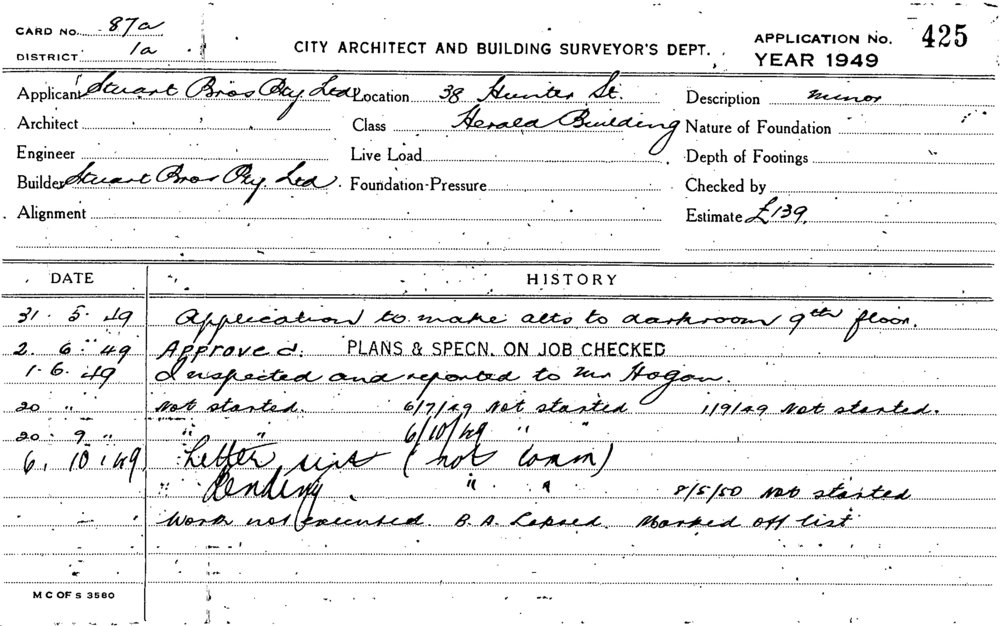 CARD NO. 87a
DISTRICT 1a
CITY ARCHITECT AND BUILDING SURVEYOR'S DEPT.
APPLICATION No. 425
YEAR 1949
Applicant Stuart Bros Pty Ltd Location 38 Hunter St. Description minor
Architect Class Herald Building Nature of Foundation
Engineer Live Load Depth of Footings
Builder Stuart Bros Pty. Ltd. Foundation-Pressure Checked by
Alignment Estimate £139.
DATE HISTORY
31. 5. 49 Application to make alts to darkroom 9th floor.
2. 6. 49 Approved. PLANS & SPECN. ON JOB CHECKED
1. 6. 49 Inspected and reported to Mr Hogan.
20 " Not started. 6/7/49 Not started 1/9/49 Not started.
20. 9 " " " 6/10/49 " "
6. 10. 49 Letter sent (not comm)
" Pending. " " 8/5/50 Not started
Work not executed. B.A. Lapsed. Marked off list
M C OF S 3580